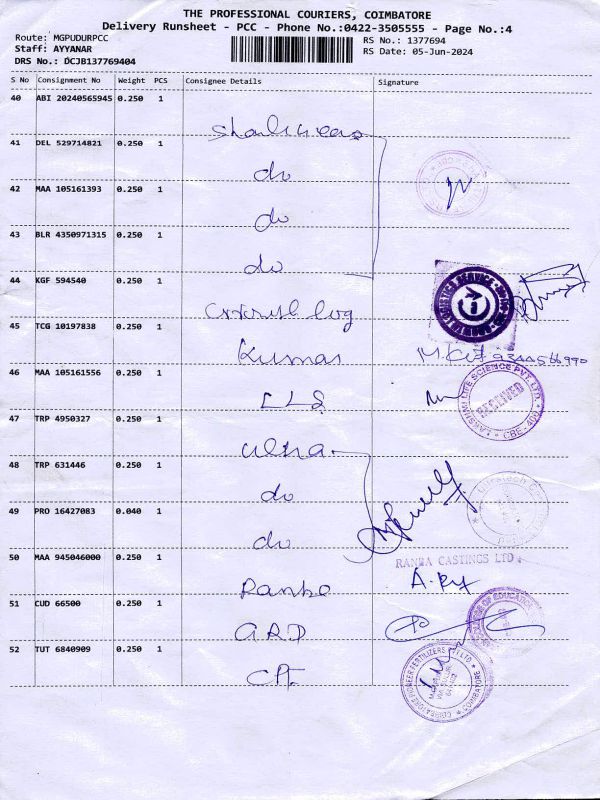 THE PROFESSIONAL COURIERS, COIMBATORE
Delivery Runsheet - PCC - Phone No.:0422-3505555 - Page No.:4
Route: MGPUDURPCC
RS No.: 1377694
Staff: AYYANAR
RS Date: 05-Jun-2024
DRS No.: DCJB137769404
S No Consignment No Weight PCS Consignee Details Signature
40 ABI 20240565945 0.250 1
41 DEL 529714821 0.250 1
do
42 MAA 105161393 0.250 1
do
43 BLR 4350971315 0.250 1
do
44 KGF 594540 0.250 1
45 TCG 10197838 0.250 1
Kumar
46 MAA 105161556 0.250 1
LLS
LAKSHMI LIFE SCIENCE PVT. LTD.
RECEIVED
CBE
47 TRP 4950327 0.250 1
ultra
48 TRP 631446 0.250 1
do
49 PRO 16427083 0.040 1
do
RANBA CASTINGS LTD
50 MAA 945046000 0.250 1
Ranba
51 CUD 66500 0.250 1
GRD
COLLEGE OF EDUCATION
52 TUT 6840909 0.250 1
CPF
COIMBATORE PIONEER FERTILIZERS PVT LTD
COIMBATORE